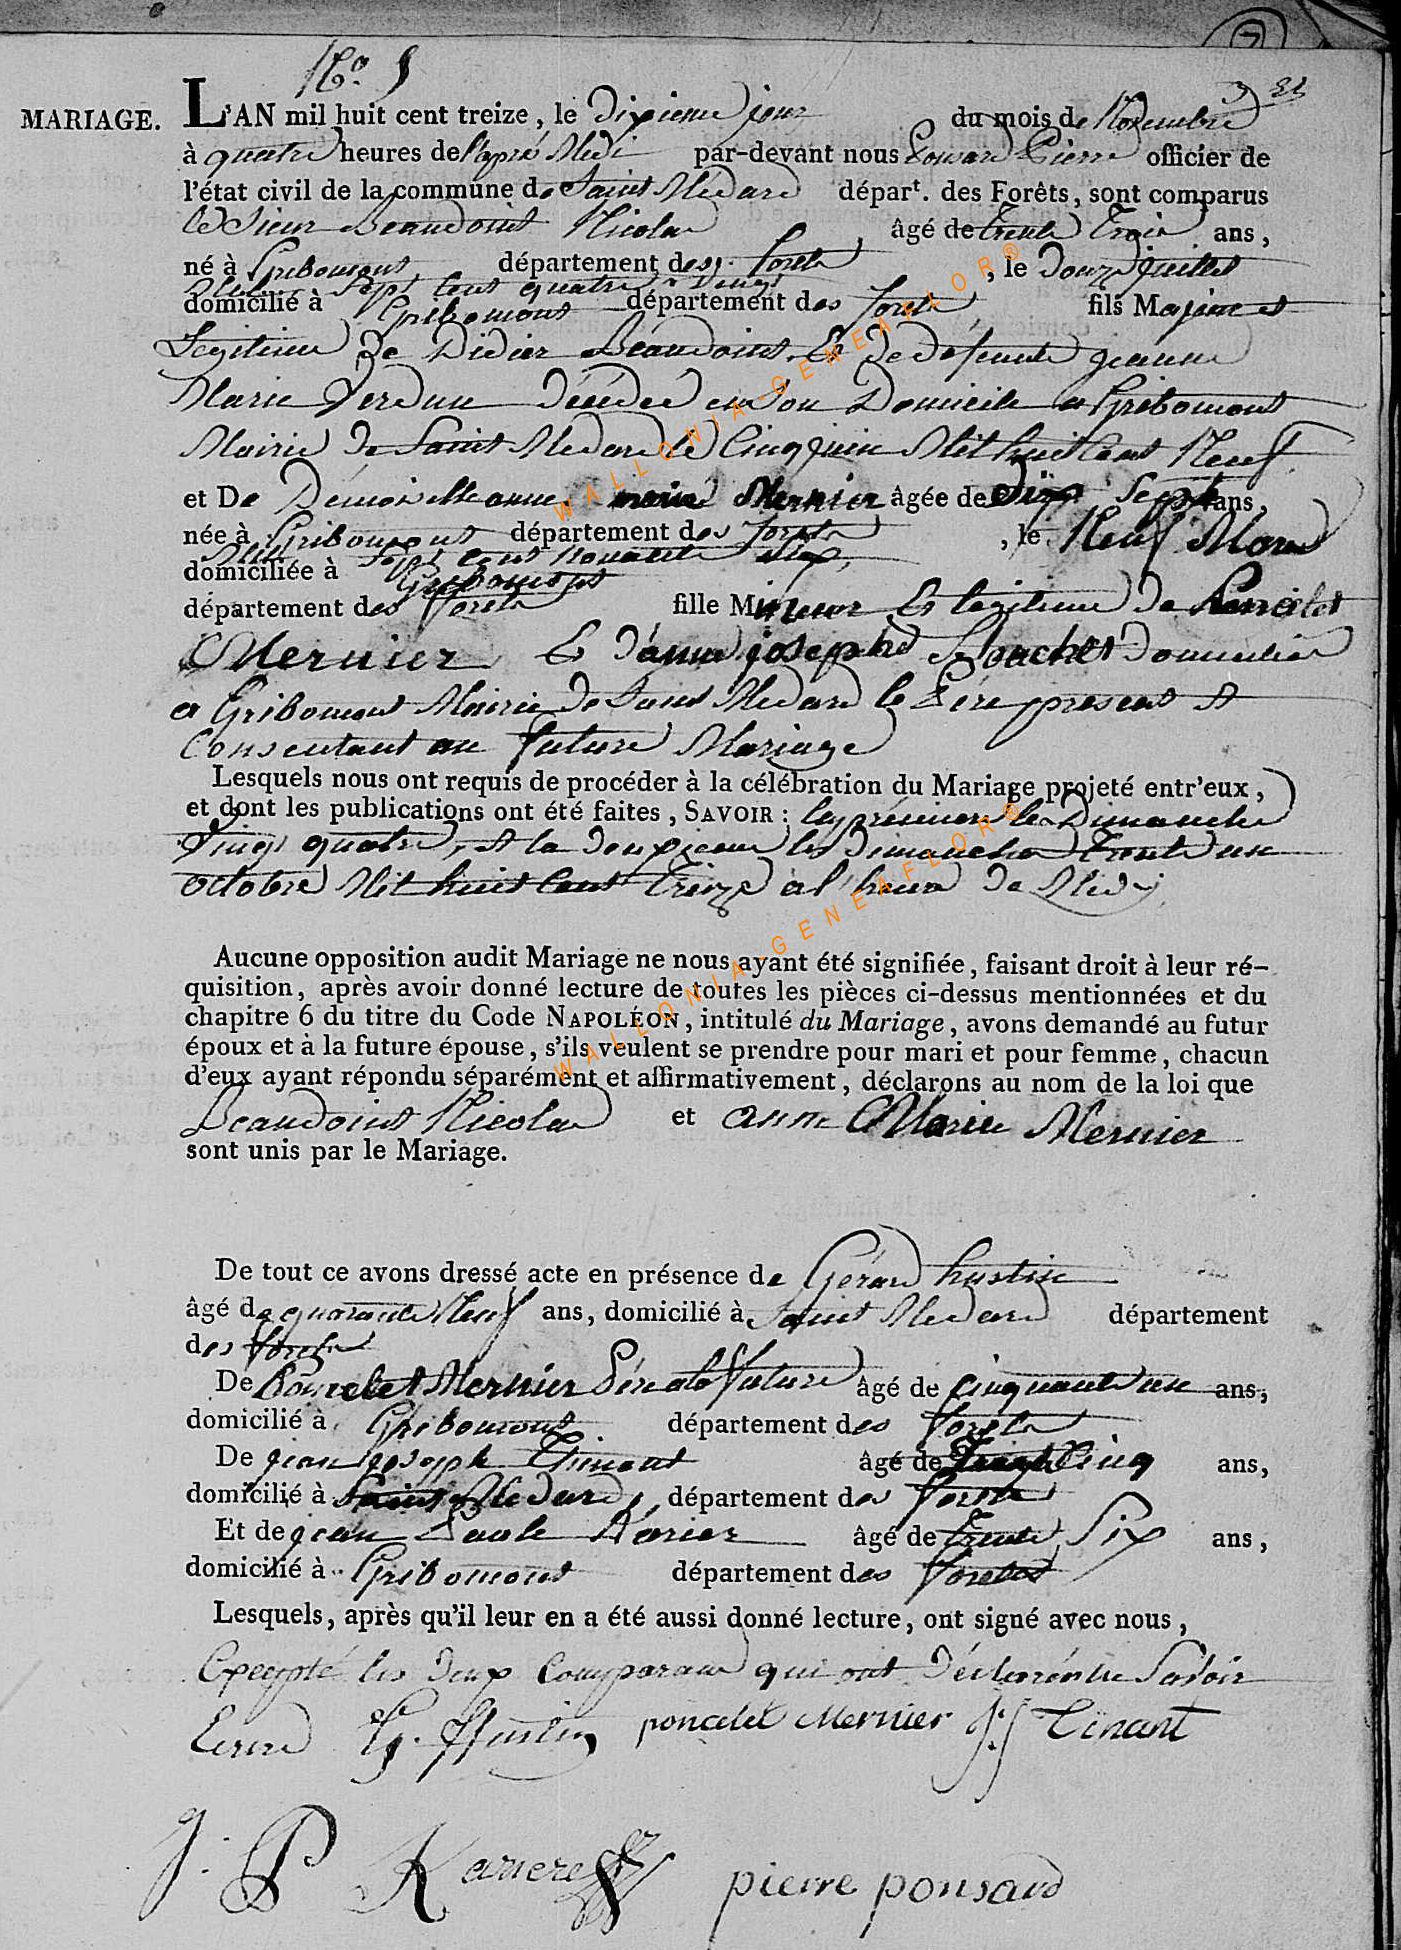 7
N.° 9
MARIAGE. L'AN mil huit cent treize, le dixieme jour du mois de Novembre
à quatre heures de l'apré Midi par-devant nous Ponsard Pierre officier de
l'état civil de la commune de Saint Médard départ. des Forêts, sont comparus
le Sieur Beaudoint Nicolas âgé de trente Trois ans,
né à Gribomont, département des forets, le douze juillet
Mil Sept Cent quatre Vingt
domicilié à Gribomont département des forets fils Majeur et
Legitime de Didier Beaudoint Et de defunte jeanne
Marie Verdun décédée en son Domicile a Gribomont
Mairie de Saint Medard le Cinq juin Mil huit Cent Neuf
et De Demoiselle anne marie Mernier âgée de Dix Sept ans,
née à Gribomont département des forets, le Neuf Mars
Mil Sept Cent nonante Six,
domiciliée à Gribomont
département des forets fille Mineur Et legitime de Poncelet
Mernier Et d'anne josephe Domicilié
a Gribomont Mairie de Saint Medard le Pére present et
Consentant au future Mariage
Lesquels nous ont requis de procéder à la célébration du Mariage projeté entr'eux,
et dont les publications ont été faites, SAVOIR : la premiere le Dimanche
Vingt quatre, et la deuxieme le dimanche Trente un
octobre Mil huit Cent Treize a l'heure de Midi
Aucune opposition audit Mariage ne nous ayant été signifiée, faisant droit à leur ré-
quisition, après avoir donné lecture de toutes les pièces ci-dessus mentionnées et du
chapitre 6 du titre du Code NAPOLÉON, intitulé du Mariage, avons demandé au futur
époux et à la future épouse, s'ils veulent se prendre pour mari et pour femme, chacun
d'eux ayant répondu séparément et affirmativement, déclarons au nom de la loi que
Beaudoint Nicolas et anne Marie Mernier
sont unis par le Mariage.
De tout ce avons dressé acte en présence de Gérard hustin
âgé de quarante Neuf ans, domicilié à Saint Medard département
des forets
De Poncelet Mernier Pére ala future âgé de Cinquante un ans,
domicilié à Gribomont département des forets
De jean joseph Tinant âgé de Cinq ans,
domicilié à Saint Medard, département des forets
Et de jean Paule Karier âgé de trente Six ans,
domicilié à Gribomont département des forets
Lesquels, après qu'il leur en a été aussi donné lecture, ont signé avec nous,
Excepté les deux Comparans qui ont Savoir
Ecrire G. Hustin poncelet Mernier J: J Tinant
J: P Kariere pierre ponsard
WALLONIA-GENEAFLOR®
WALLONIA-GENEAFLOR®